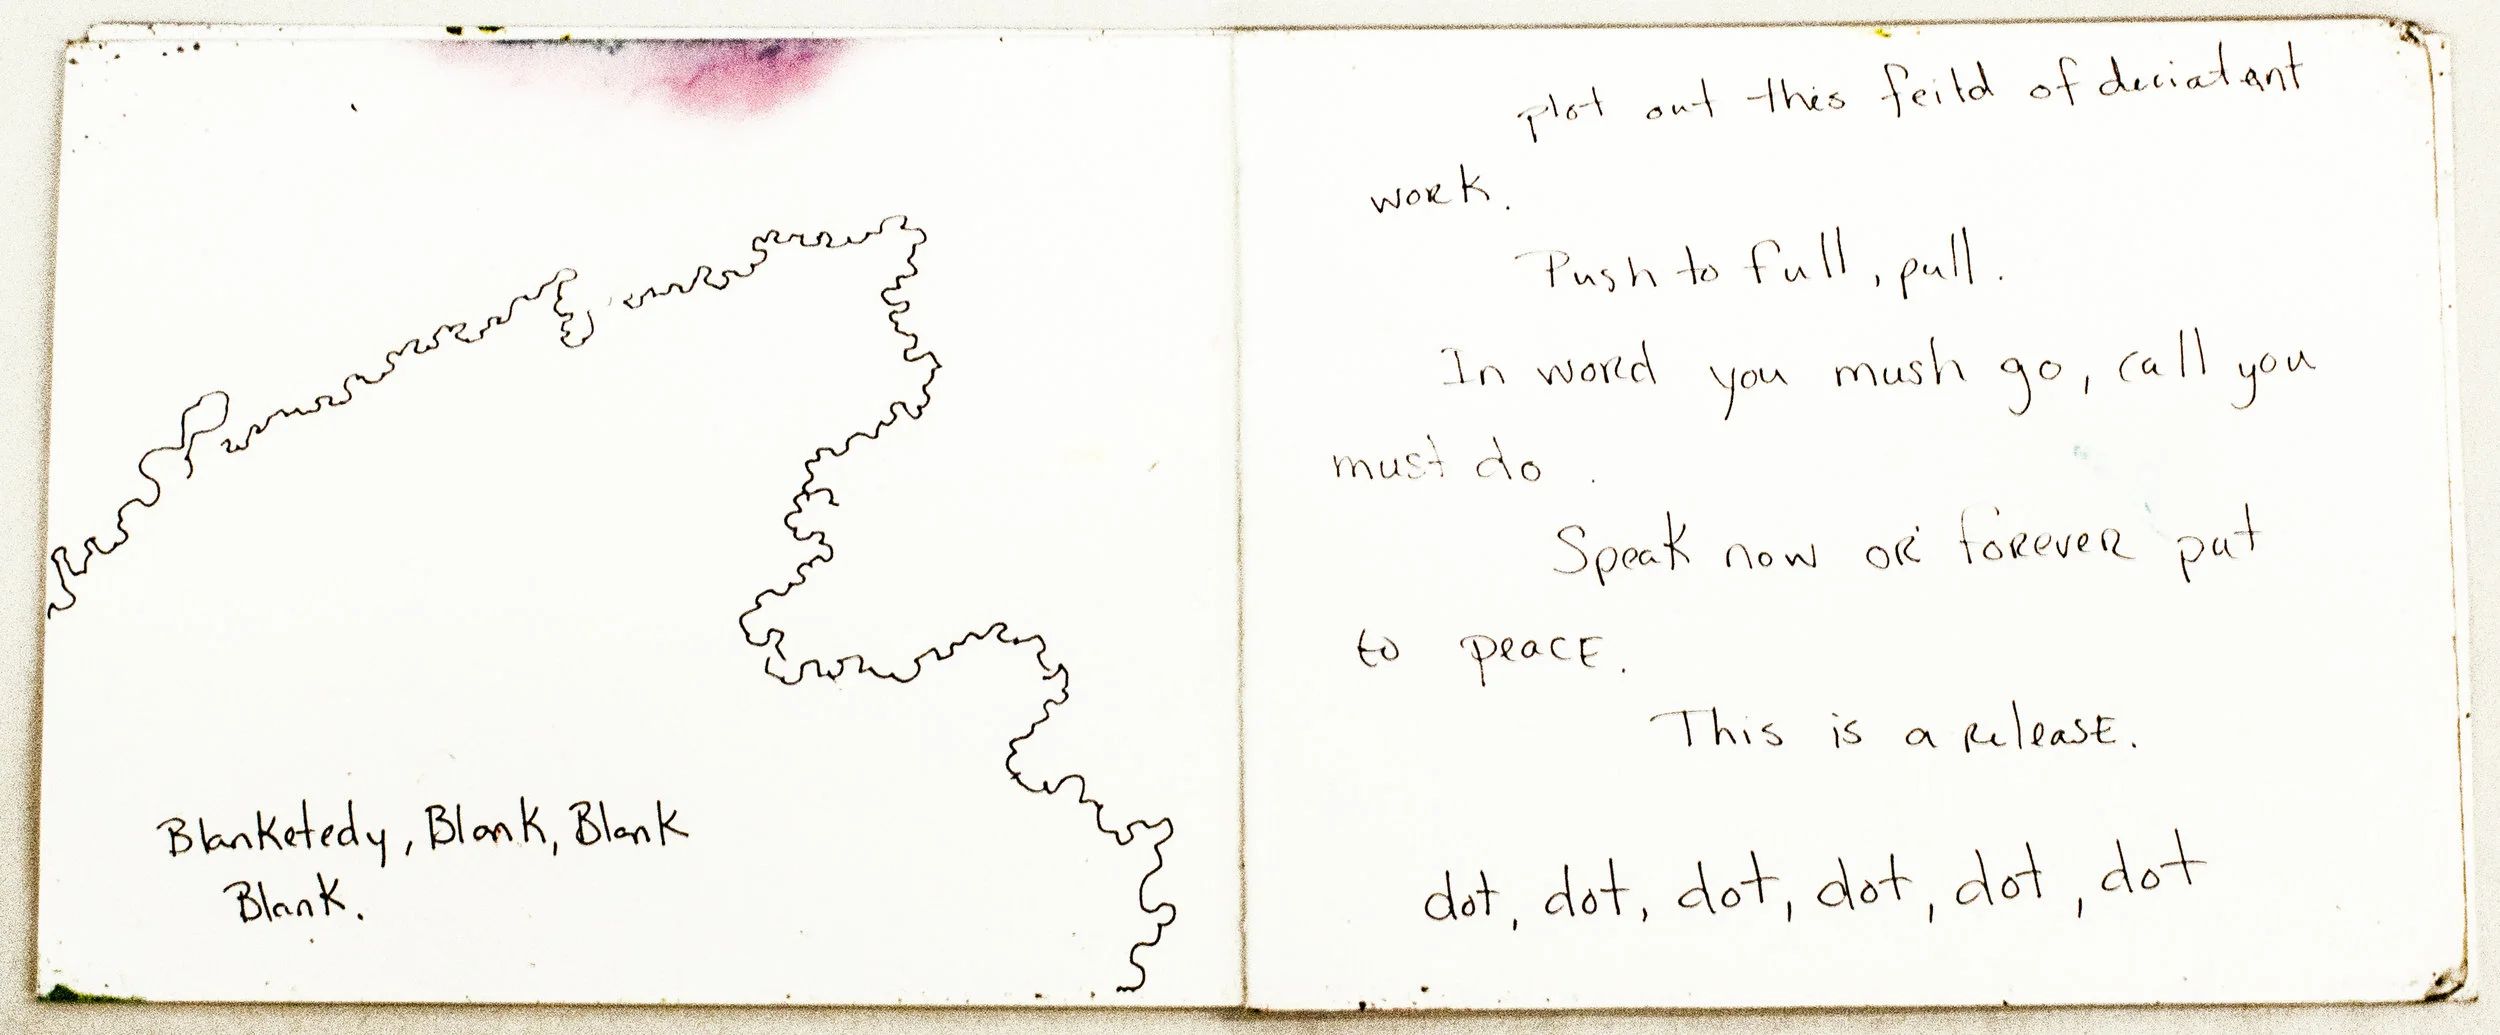 Blanketedy, Blank, Blank
Blank.
plot out this feild of deviatant
work.
Push to full, pull.
In word you mush go, call you
must do.
Speak now or forever put
to peace.
This is a release.
dot, dot, dot, dot, dot, dot